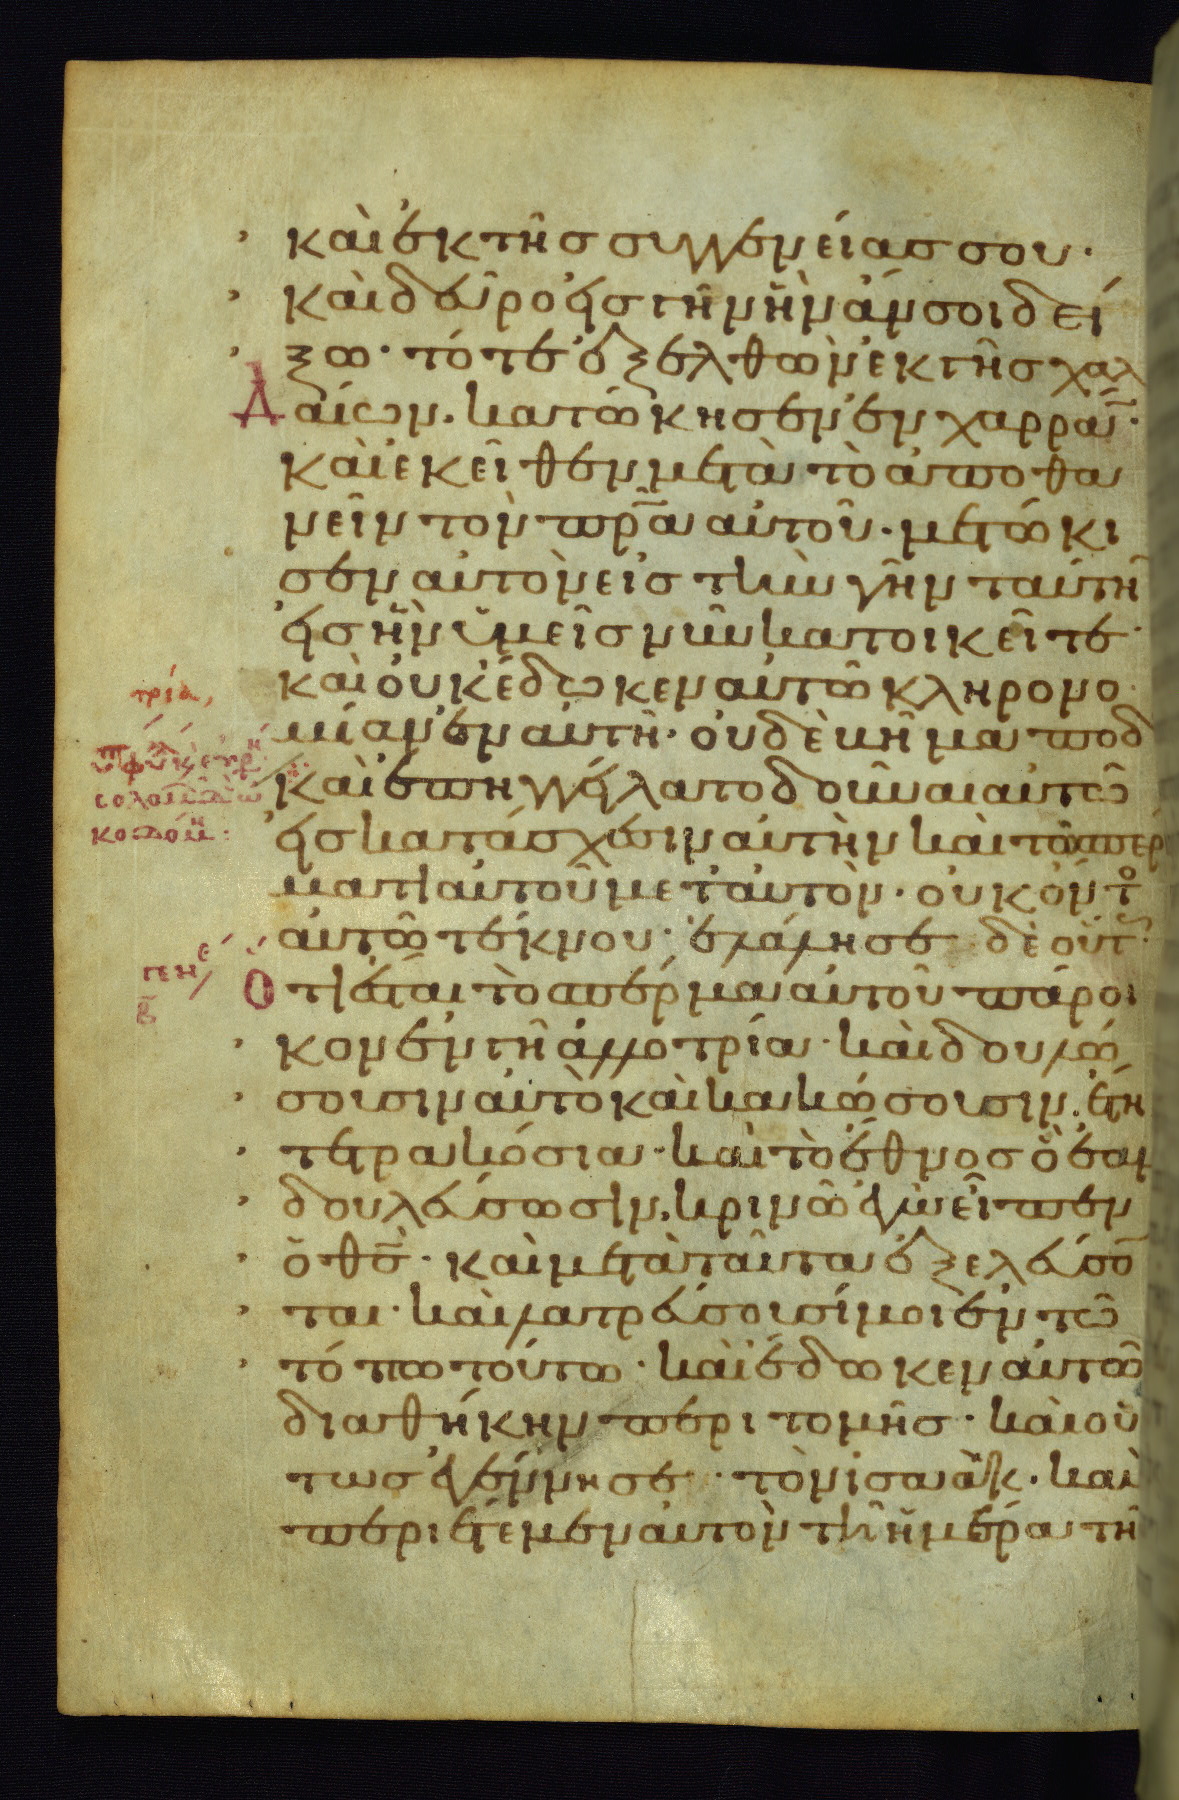 καὶ ἐκ τῆς συγγενείας σου·
καὶ δεῦρο εἰς τὴν γῆν ἣν ἄν σοι δεί
ξω· τότε ἐξελθὼν ἐκ γῆς χαλ
δαίων. κατώκησεν ἐν χαρράν·
καὶ ἐκεῖθεν μετὰ τὸ ἀποθα
νεῖν τὸν π̅ρ̅α̅ αὐτοῦ· μετώκι
σεν αὐτὸν εἰς τὴν γῆν ταύτη̅
εἰς ἣν ὑμεῖς νῦν κατοικεῖτε·
καὶ οὐκ ἔδωκεν αὐτῶ κληρονο
μίαν ἐν αὐτῆ· οὐδὲ βῆμα ποδ
καὶ ἐπηγγείλατο δοῦναι αὐτῶ
εἰς κατάσχεσιν αὐτὴν καὶ τῶ σπέρ
ματι αὐτοῦ μετ' αὐτὸν· οὐκ ὄντο
αὐτῶ τέκνου· ἐλάλησε δὲ οὕτ
Ὅτι ἔσται τὸ σπέρμα αὐτοῦ πάροι
κον ἐν γῆ ἀλλοτρία· καὶ δουλώ
σουσιν αὐτὸ καὶ κακώσουσιν. ἔτη
τετρακόσια· καὶ τὸ ἔθνος ὃ ἐὰν
δουλεύσωσιν, κρινῶ ἐγὼ εἶπεν
ὁ θ̅ς̅· καὶ μετὰ ταῦτα ἐξελεύσο̅
ται· καὶ λατρεύσουσίμοι ἐν τῶ
τόπω τούτω· καὶ ἔδωκεν αὐτῶ
διαθήκην περιτομῆς· καὶ οὕ
τως ἐγέννησε· τὸν ἰσαάκ· καὶ
περιέτεμεν αὐτὸν τῆ ἡμέρα τῆ